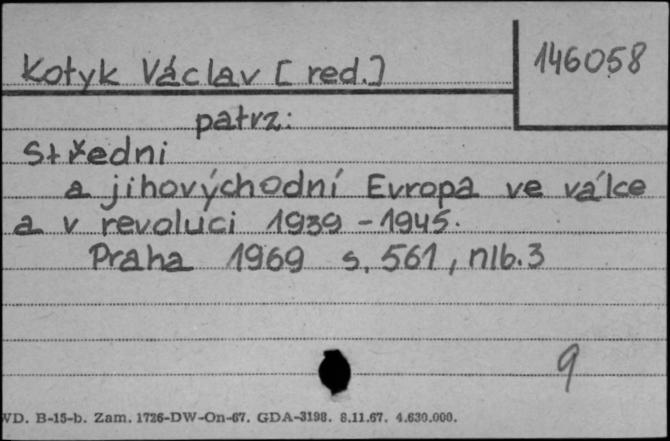 Kotyk Václav [red.]
146058
patrz:
Středni
a jihovýchodní Evropa ve válce
a v revoluci 1939-1945.
Praha 1969 s. 561, nlb. 3
9
WD. B-15-b. Zam. 1726-DW-On-67. GDA-3198. 8.11.67. 4.630.000.